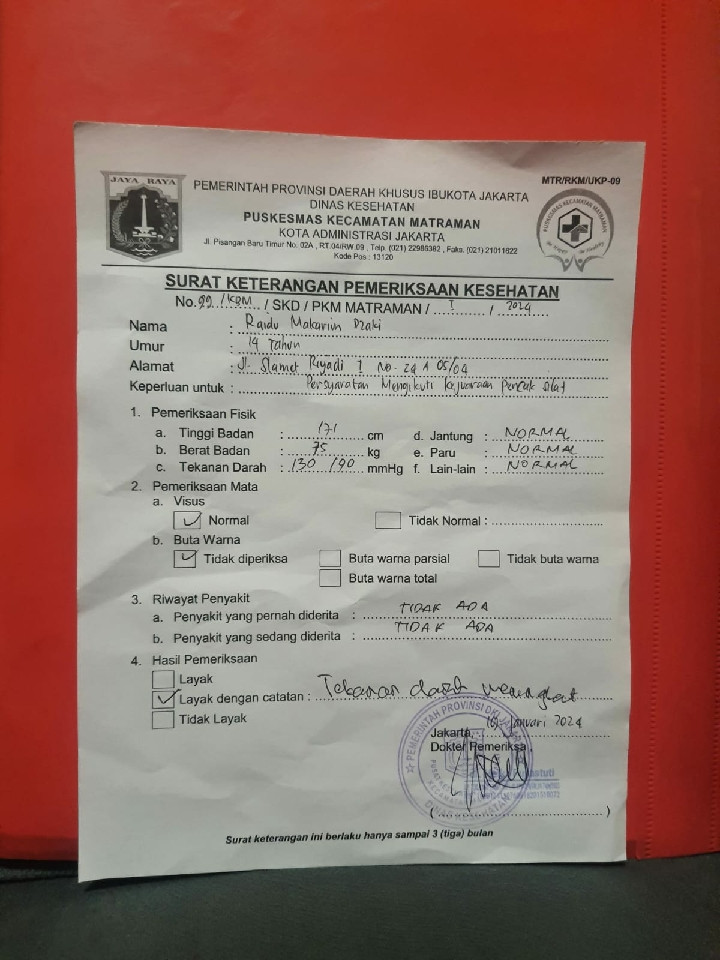 JAYA RAYA
MTR/RKM/UKP-09
PEMERINTAH PROVINSI DAERAH KHUSUS IBUKOTA JAKARTA
DINAS KESEHATAN
PUSKESMAS KECAMATAN MATRAMAN
KOTA ADMINISTRASI JAKARTA
Jl. Pisangan Baru Timur No. 02A , RT.04/RW.09 , Telp. (021) 22985382 , Faks. (021) 21011822
Kode Pos : 13120
PUSKESMAS KECAMATAN MATRAMAN
SURAT KETERANGAN PEMERIKSAAN KESEHATAN
No. 99 /KRM / SKD / PKM MATRAMAN / I / 2024
Nama : Makarim Dzaki
Umur : 14 Tahun
Alamat : Jl. Slamet Riyadi I No. 24 A 05/04
Keperluan untuk : Persyaratan Mengikuti Kejuaraan Pencak Silat
1. Pemeriksaan Fisik
a. Tinggi Badan : 171 cm d. Jantung : NORMAL
b. Berat Badan : 75 kg e. Paru : NORMAL
c. Tekanan Darah : 130 /90 mmHg f. Lain-lain : NORMAL
2. Pemeriksaan Mata
a. Visus
Normal Tidak Normal :
b. Buta Warna
Tidak diperiksa Buta warna parsial Tidak buta warna
Buta warna total
3. Riwayat Penyakit
a. Penyakit yang pernah diderita : TIDAK ADA
b. Penyakit yang sedang diderita : TIDAK ADA
4. Hasil Pemeriksaan
Layak
Layak dengan catatan : Tekanan darah meningkat
Tidak Layak
Jakarta, Januari 2024
Dokter Pemeriksa
PEMERINTAH PROVINSI DKI
DINAS KESEHATAN
( )
Surat keterangan ini berlaku hanya sampai 3 (tiga) bulan